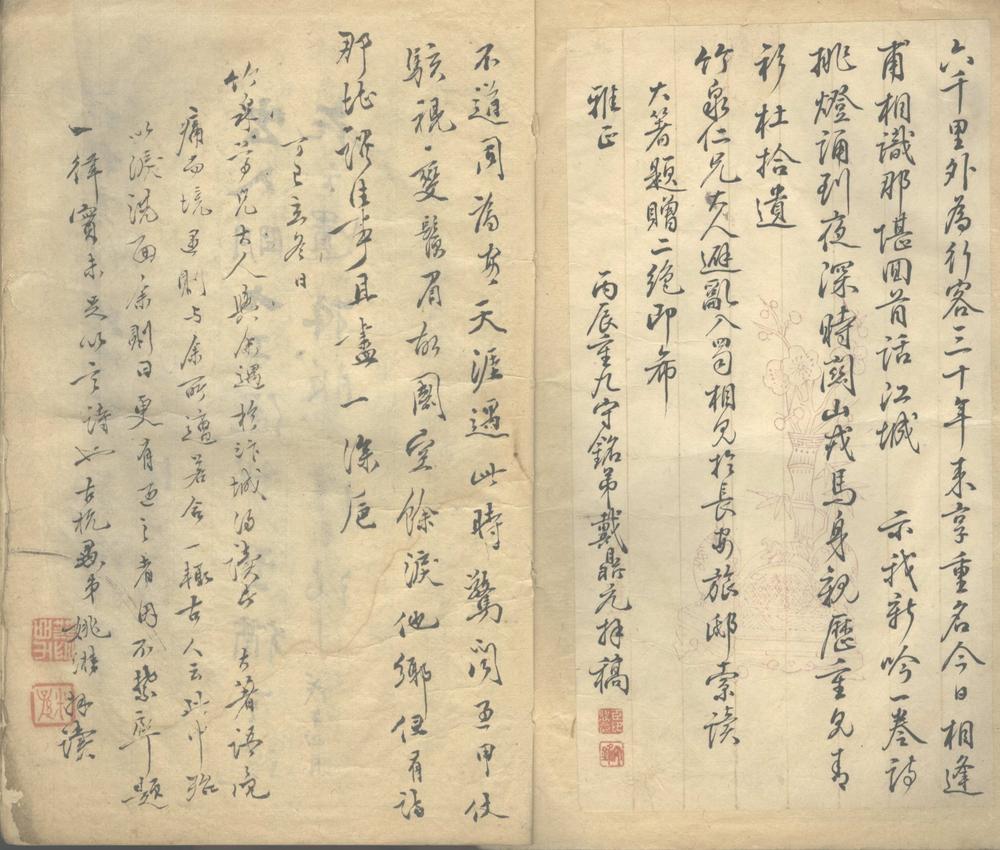 六千里外為行客三十年来享重名今日相逢
甫相識那堪回首話江城　示我新吟一卷詩
挑燈誦到夜深時關山戎馬身親歷重見青
衫杜拾遺
竹泉仁兄大人避亂入蜀相見於長安旅邸索讀
大箸題贈二絶即希
雅正
丙辰重九守銘弟戴鼎元拜稿
不道同為客天涯遇此時驚闻亟甲仗
駭視變鬚眉故園空餘淚他鄉但有詩
那堪談往事且盡一深卮
丁巳立冬日
竹泉学兄大人與余遇於汴城得讀其大著語竟
痛而境逼則与余所遭若合一轍古人云此中
以淚洗面余則曰更有過之者因不禁率題
一律實未足以言詩也古杭愚弟姚　拜讀